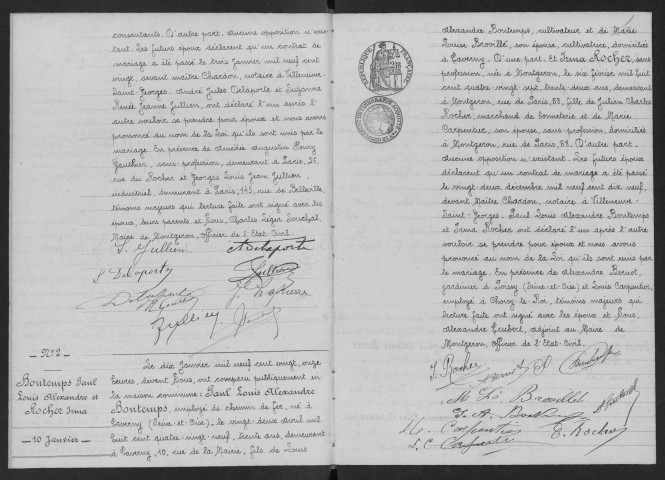 consentants. D'autre part, aucune opposition n'exis-
tant. Les futurs époux déclarent qu'un contrat de
mariage a été passé le trois Janvier mil neuf cent
vingt, devant maître Chardon, notaire à Villeneuve-
Saint-Georges. André Jules Delaporte et Suzanne
Renée Jeanne Jullien, ont déclaré l'un après l'
autre vouloir se prendre pour époux et nous avons
prononcé au nom de la Loi qu'ils sont unis par le
mariage. En présence de Amédée Augustin Henry
Gauthier, sans profession, demeurant à Paris, 26,
rue du Rocher et Georges Louis Jean Jullien,
industriel, demeurant à Paris, 145, rue de Belleville,
témoins majeurs qui lecture faite ont signé avec les
époux, leurs parents et Nous, Charles Léger
Maire de Montgeron, Officier de l'Etat-Civil.
S. Jullien A Delaporte
S Delaporte Jullien
Delaporte
Jullien
- N° 2 -
Bontemps Paul
Louis Alexandre et
Rocher Irma
- 10 Janvier -
Le dix Janvier mil neuf cent vingt, onze
heures, devant Nous, ont comparu publiquement en
la maison commune: Paul Louis Alexandre
Bontemps, employé de chemin de fer, né à
Taverny (Seine-et-Oise), le vingt-deux avril mil
huit cent quatre-vingt-neuf, trente ans, demeurant
à Taverny, 10, rue de la Mairie, fils de Louis
Alexandre Bontemps, cultivateur et de Marie
Louise Brovillé, son épouse, cultivatrice, domiciliés
à Taverny. D'une part. Et Irma Rocher, sans
profession, née à Montgeron, le six février mil huit
cent quatre-vingt-sept, trente-deux ans, demeurant
à Montgeron, rue de Paris, 68, fille de Julien Charles
Rocher, marchand de et de Marie
Carpentier, son épouse, sans profession, domiciliés
à Montgeron, rue de Paris, 68. D'autre part.
Aucune opposition n'existant. Les futurs époux
déclarent qu'un contrat de mariage a été passé
le vingt-deux décembre mil neuf cent dix-neuf,
devant Maître Chardon, notaire à Villeneuve-
Saint-Georges. Paul Louis Alexandre Bontemps
et Irma Rocher ont déclaré l'un après l'autre
vouloir se prendre pour époux et nous avons
prononcé au nom de la Loi qu'ils sont unis par
le mariage. En présence de Alexandre Bernot,
jardinier à Poissy (Seine-et-Oise) et Louis Carpentier,
employé à Choisy-le-Roi, témoins majeurs qui
lecture faite ont signé avec les époux et Nous,
Alexandre Heubert, adjoint au Maire de
Montgeron, Officier de l'Etat-Civil.
I. Rocher A Bernot
M Brovillet
M Carpentier E. Rocher
L. C. Carpentier
RÉPUBLIQUE FRANÇAISE